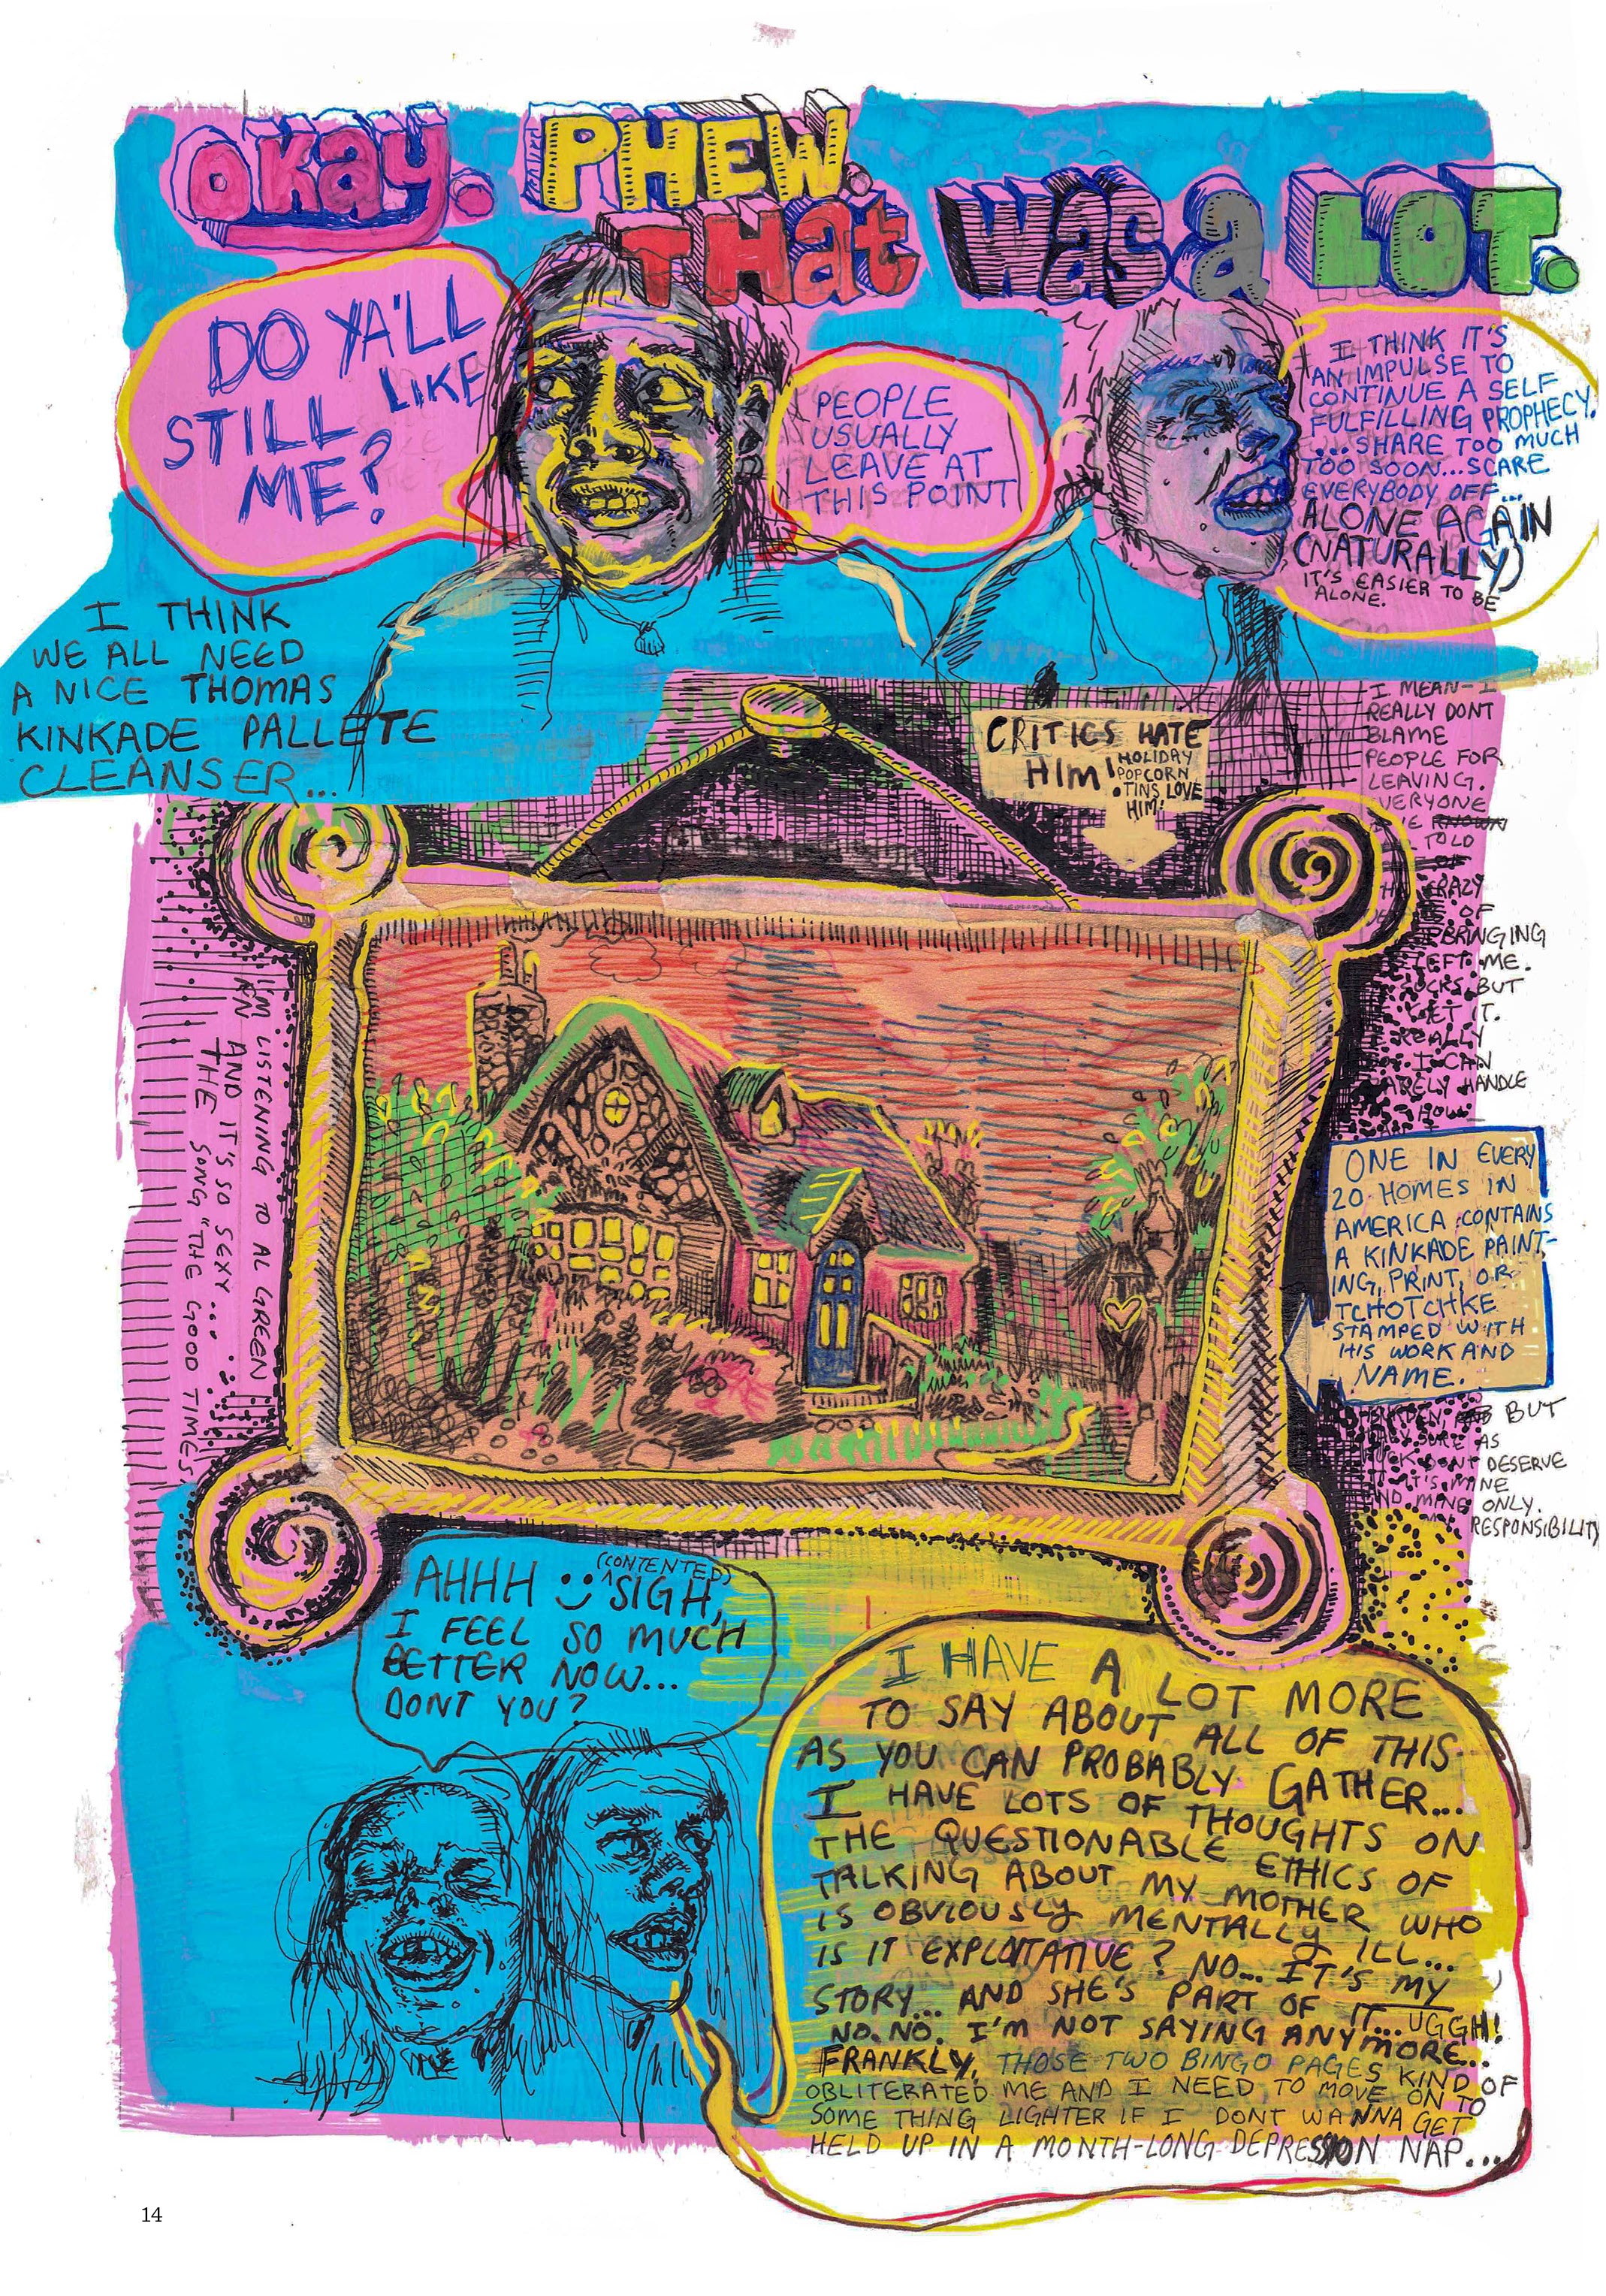 OKAY. PHEW.
THAT WAS A LOT.
DO YA'LL
STILL LIKE
ME?
PEOPLE
USUALLY
LEAVE AT
THIS POINT
I THINK IT'S
AN IMPULSE TO
CONTINUE A SELF
FULFILLING PROPHECY.
...SHARE TOO MUCH
TOO SOON...SCARE
EVERYBODY OFF...
ALONE AGAIN
(NATURALLY)
IT'S EASIER TO BE
ALONE.
I THINK
WE ALL NEED
A NICE THOMAS
KINKADE PALLETE
CLEANSER...
CRITICS HATE
HIM!
HOLIDAY
POPCORN
TINS LOVE
HIM!
I MEAN-I
REALLY DONT
BLAME
PEOPLE FOR
LEAVING.
EVERYONE
I'VE KNOWN
TOLD
OF
CRAZY
OF
BRINGING
LEFT ME.
SUCKS, BUT
GET IT.
REALLY
I CAN
BARELY HANDLE
ONE IN EVERY
20 HOMES IN
AMERICA CONTAINS
A KINKADE PAINT-
ING, PRINT, OR
TCHOTCHKE
STAMPED WITH
HIS WORK AND
NAME.
BURDEN, AND BUT
SURE AS
FUCK DONT DESERVE
IT'S MINE
AND MINE ONLY.
RESPONSIBILITY
I'M LISTENING TO AL GREEN
RN AND IT'S SO SEXY....
THE SONG "THE GOOD TIMES"
AHHH :) (CONTENTED) SIGH,
I FEEL SO MUCH
BETTER NOW...
DONT YOU?
I HAVE A LOT MORE
TO SAY ABOUT ALL OF THIS
AS YOU CAN PROBABLY GATHER...
I HAVE LOTS OF THOUGHTS ON
THE QUESTIONABLE ETHICS OF
TALKING ABOUT MY MOTHER WHO
IS OBVIOUSLY MENTALLY ILL...
IS IT EXPLOITATIVE? NO... IT'S MY
STORY... AND SHE'S PART OF IT...UGGH!
NO. NO. I'M NOT SAYING ANYMORE...
FRANKLY, THOSE TWO BINGO PAGES KIND OF
OBLITERATED ME AND I NEED TO MOVE ON TO
SOME THING LIGHTER IF I DONT WANNA GET
HELD UP IN A MONTH-LONG DEPRESSION NAP....
14